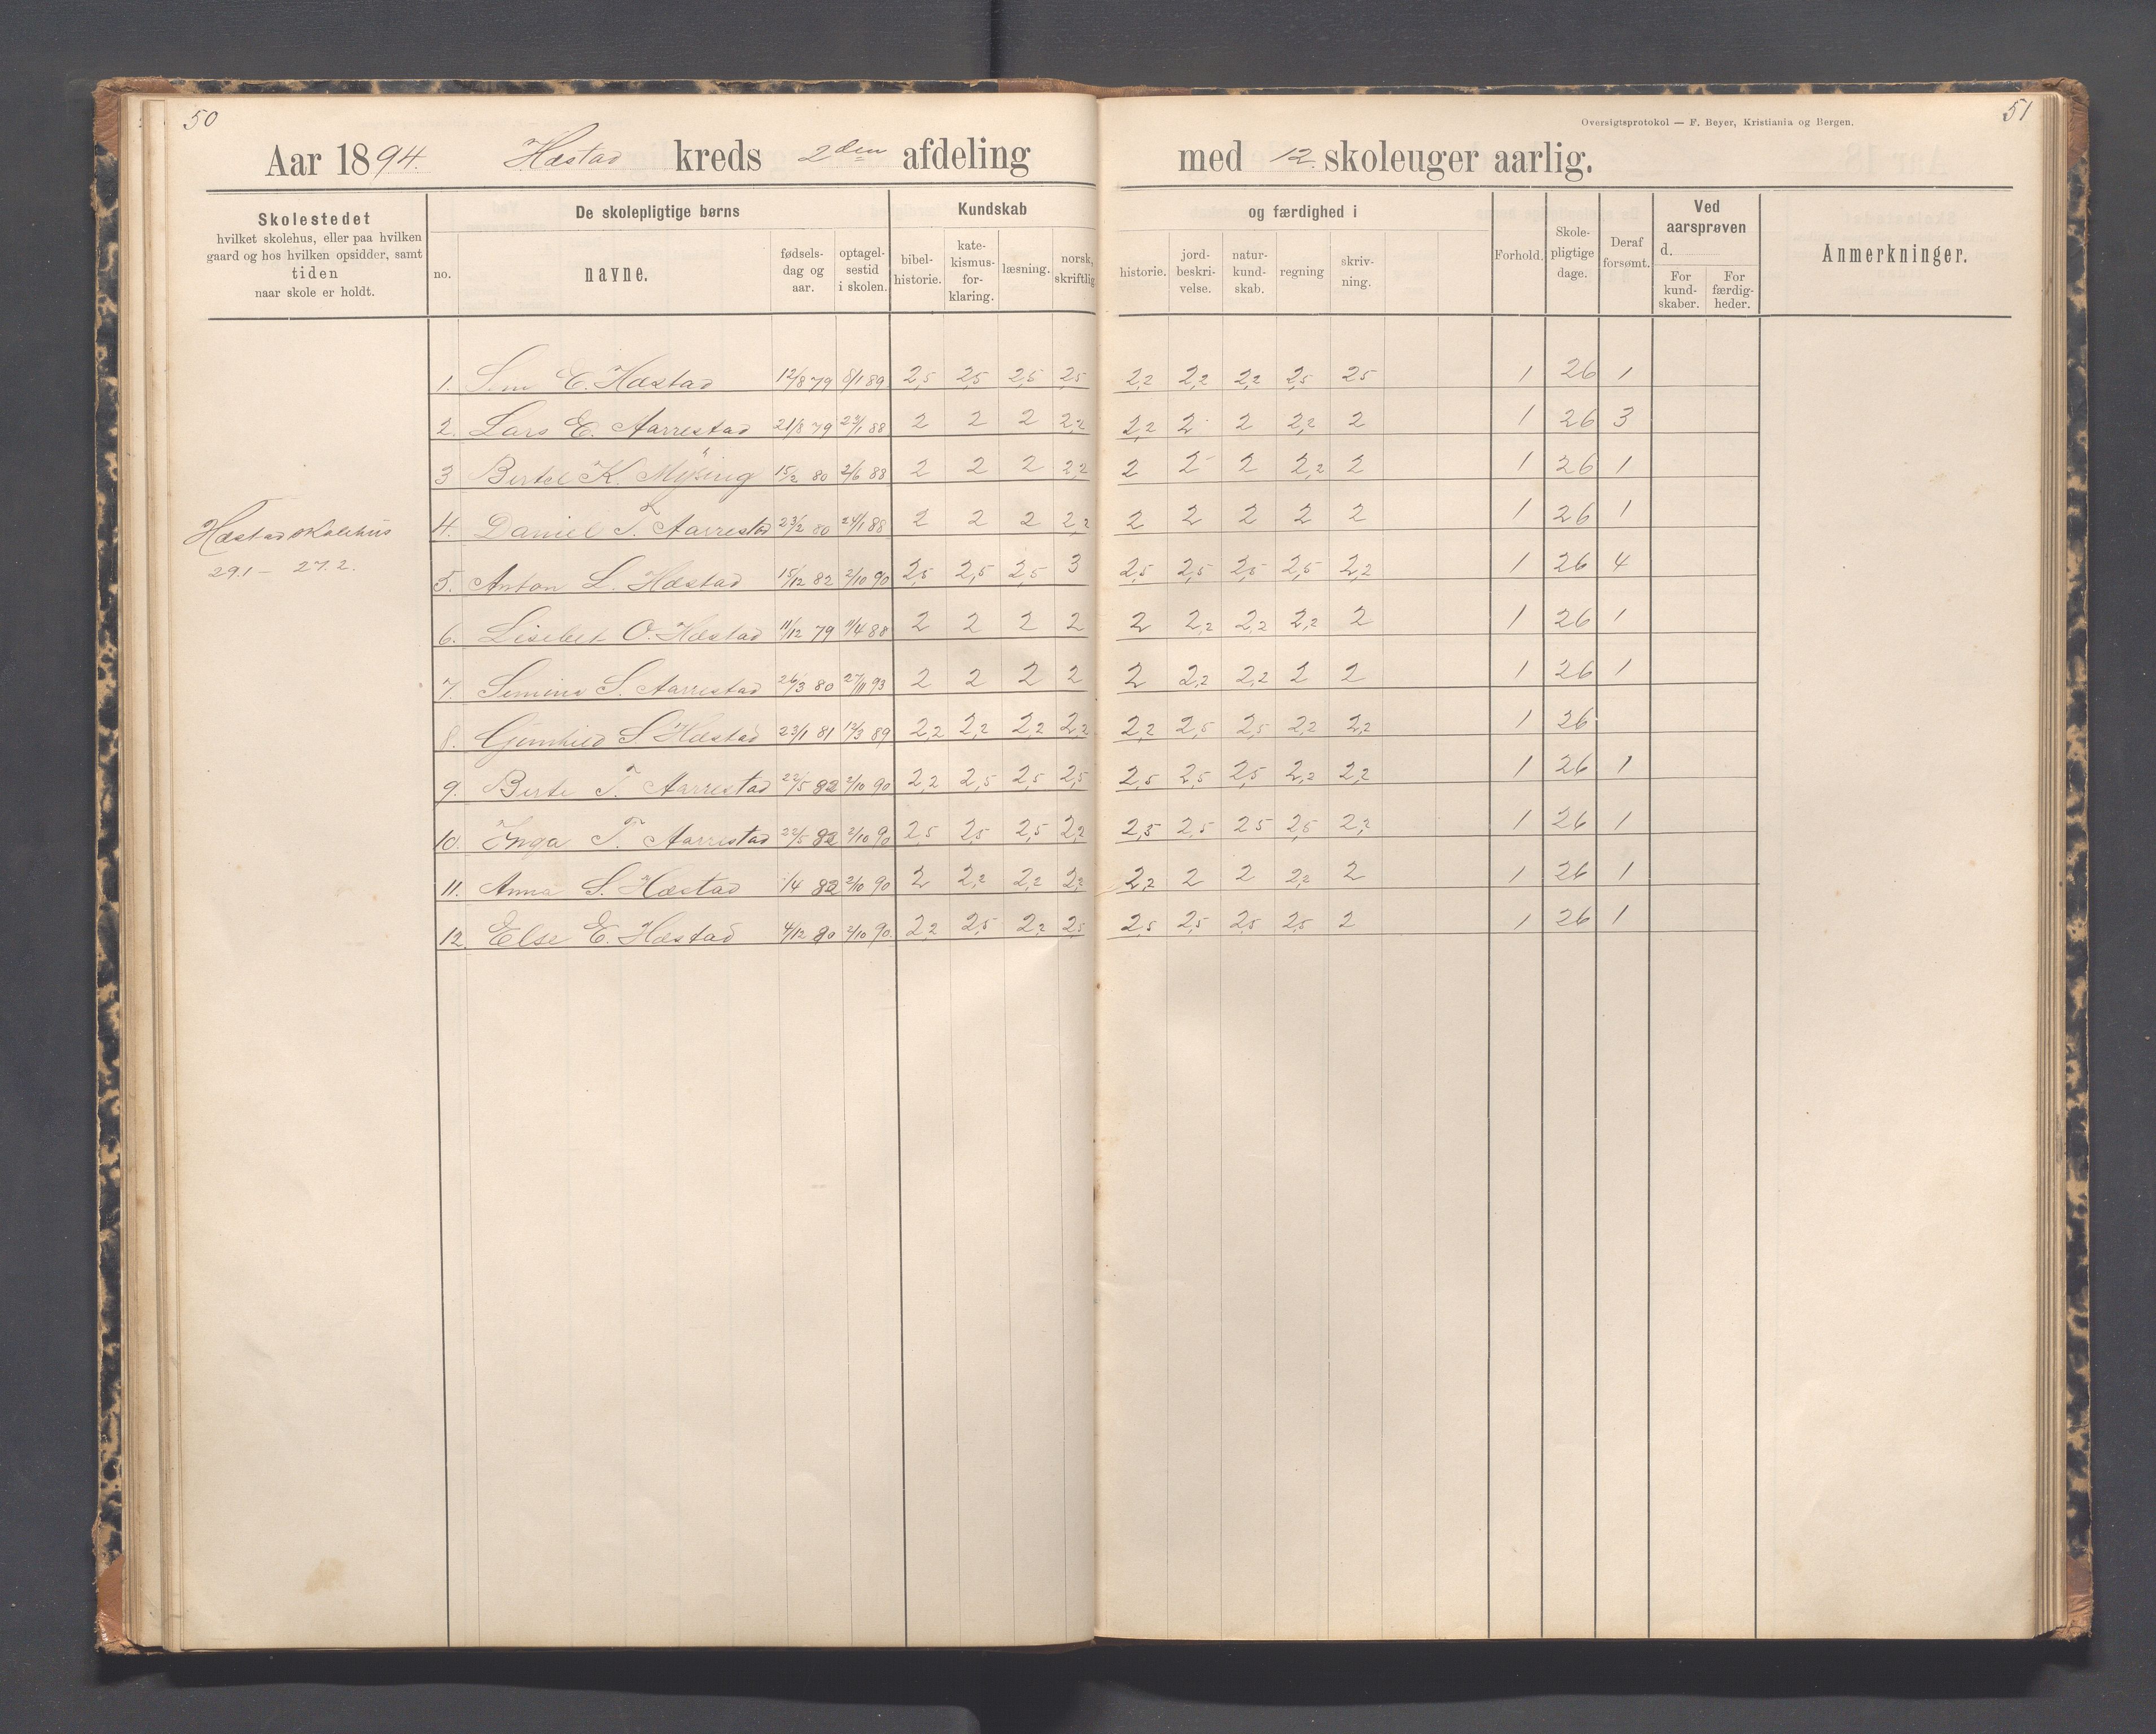 50
51
Oversigtsprotokol — F. Beyer, Kristiania og Bergen.
Aar 1894. Hæstad kreds 2den afdeling med 12. skoleuger aarlig.
Skolestedet
hvilket skolehus, eller paa hvilken
gaard og hos hvilken opsidder, samt
tiden
naar skole er holdt.
De skolepligtige børns
no. navne. fødsels-dag og aar. optagel-sestid i skolen.
Kundskab og færdighed i
bibel-historie. kate-kismus-for-klaring. læsning. norsk, skriftlig historie. jord-beskri-velse. natur-kund-skab. regning skriv-ning.
Forhold. Skole-pligtige dage. Deraf forsømt.
Ved aarsprøven d.
For kund-skaber. For færdig-heder.
Anmerkninger.
Hæstad skolehus
29.1 — 27.2.
1. E. Hæstad 12/8 79 8/1 89 2,5 2,5 2,5 2,5 2,2 2,2 2,2 2,5 2,5 1 26 1
2. Lars E. Aarrestad 21/8 79 23/1 88 2 2 2 2,2 2,2 2 2 2,2 2 1 26 3
3 Bertel K. Mysing 15/2 80 2/6 88 2 2 2 2,2 2 2 2 2,2 2 1 26 1
4. Daniel T. Aarrestad 23/2 80 24/1 88 2 2 2 2,2 2 2 2 2 2 1 26 1
5. Anton L. Hæstad 15/12 82 2/10 90 2,5 2,5 2,5 3 2,5 2,5 2,5 2,5 2,2 1 26 4
6. Lisebet O. Hæstad 11/12 79 11/4 88 2 2 2 2 2 2,2 2,2 2,2 2 1 26 1
7. Semine S. Aarrestad 26/3 80 27/11 93 2 2 2 2 2 2,2 2,2 2 2 1 26 1
8. Gunhild S. Hæstad 23/1 81 12/3 89 2,2 2,2 2,2 2,2 2,2 2,5 2,5 2,2 2,2 1 26
9. Berte T. Aarrestad 22/5 82 2/10 90 2,2 2,5 2,5 2,5 2,5 2,5 2,5 2,2 2,2 1 26 1
10. Inga T. Aarrestad 22/5 82 2/10 90 2,5 2,5 2,5 2,2 2,5 2,5 2,5 2,5 2,2 1 26 1
11. Anna S. Hæstad 1/4 82 2/10 90 2 2,2 2,2 2,2 2,2 2 2 2,2 2 1 26 1
12. Else E. Hæstad 4/12 80 2/10 90 2,2 2,5 2,2 2,5 2,5 2,5 2,5 2,5 2 1 26 1